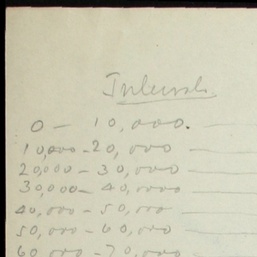 Intervals.
0 – 10,000.
10,000 – 20,000
20,000 – 30,000
30,000 – 40,000
40,000 – 50,000
50,000 – 60,000
60,000 – 70,000